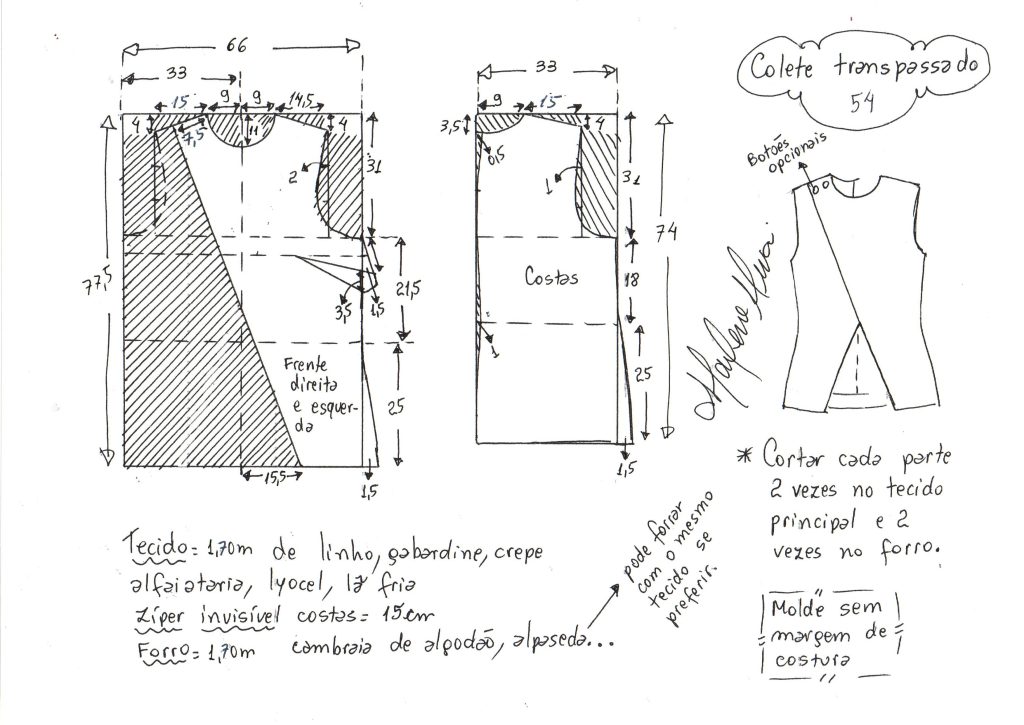 66
33
15
9
9
14,5
4
7,5
11
4
2
31
77,5
3,5
1,5
21,5
Frente
direita
e esquer-
da
25
15,5
1,5
33
9
15
3,5
4
0,5
1
31
74
Costas
18
1
25
1,5
Colete transpassado
54
Botões
opcionais
* Cortar cada parte
2 vezes no tecido
principal e 2
vezes no forro.
Molde sem
margem de
costura
Tecido = 1,70m de linho, gabardine, crepe
alfaiataria, lyocel, lã fria
Zíper invisível costas = 15cm
Forro = 1,70m cambraia de algodão, alpaseda...
pode forrar
com o mesmo
tecido se
preferir.